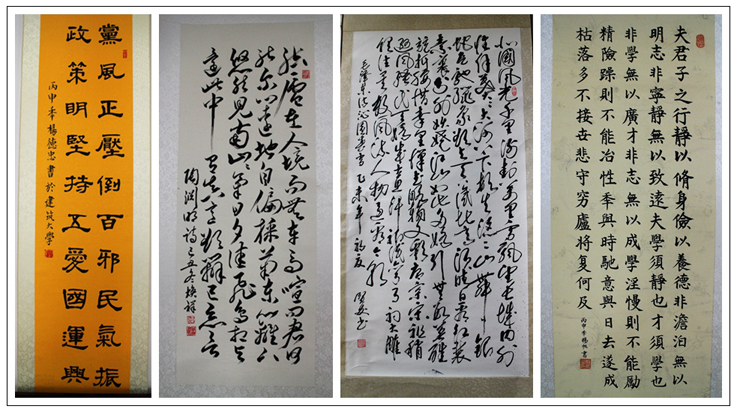 黨風正壓倒百邪民氣振
政策明堅持五愛國運興
丙申季楊德忠書於建筑大學
結廬在人境而無車馬喧問君何
能尔心遠地自偏採菊東籬下
悠然見南山山氣日夕佳飛鳥相與
還此中有真意欲辯已忘言
陶渊明詩己丑冬焕祥
北國風光千里冰封萬里雪飄望長城内外
惟餘莽莽大河上下頓失滔滔山舞銀
蛇原馳蠟象欲與天公試比高須晴日看红裝
素裹分外妖嬈江山如此多嬌引無數英雄
競折腰惜秦皇漢武略輸文采唐宗宋祖稍
遜風騷一代天驕成吉思汗只識彎弓射大雕
俱往矣數風流人物還看今朝
毛澤東詞沁園春雪乙未年初夏
夫君子之行靜以脩身儉以養德非澹泊無以
明志非寧靜無以致遠夫學須靜也才須學也
非學無以廣才非志無以成學淫慢則不能勵
精險躁則不能冶性季與時馳意與日去遂成
枯落多不接世悲守穷廬將复何及
丙申季楊帆書